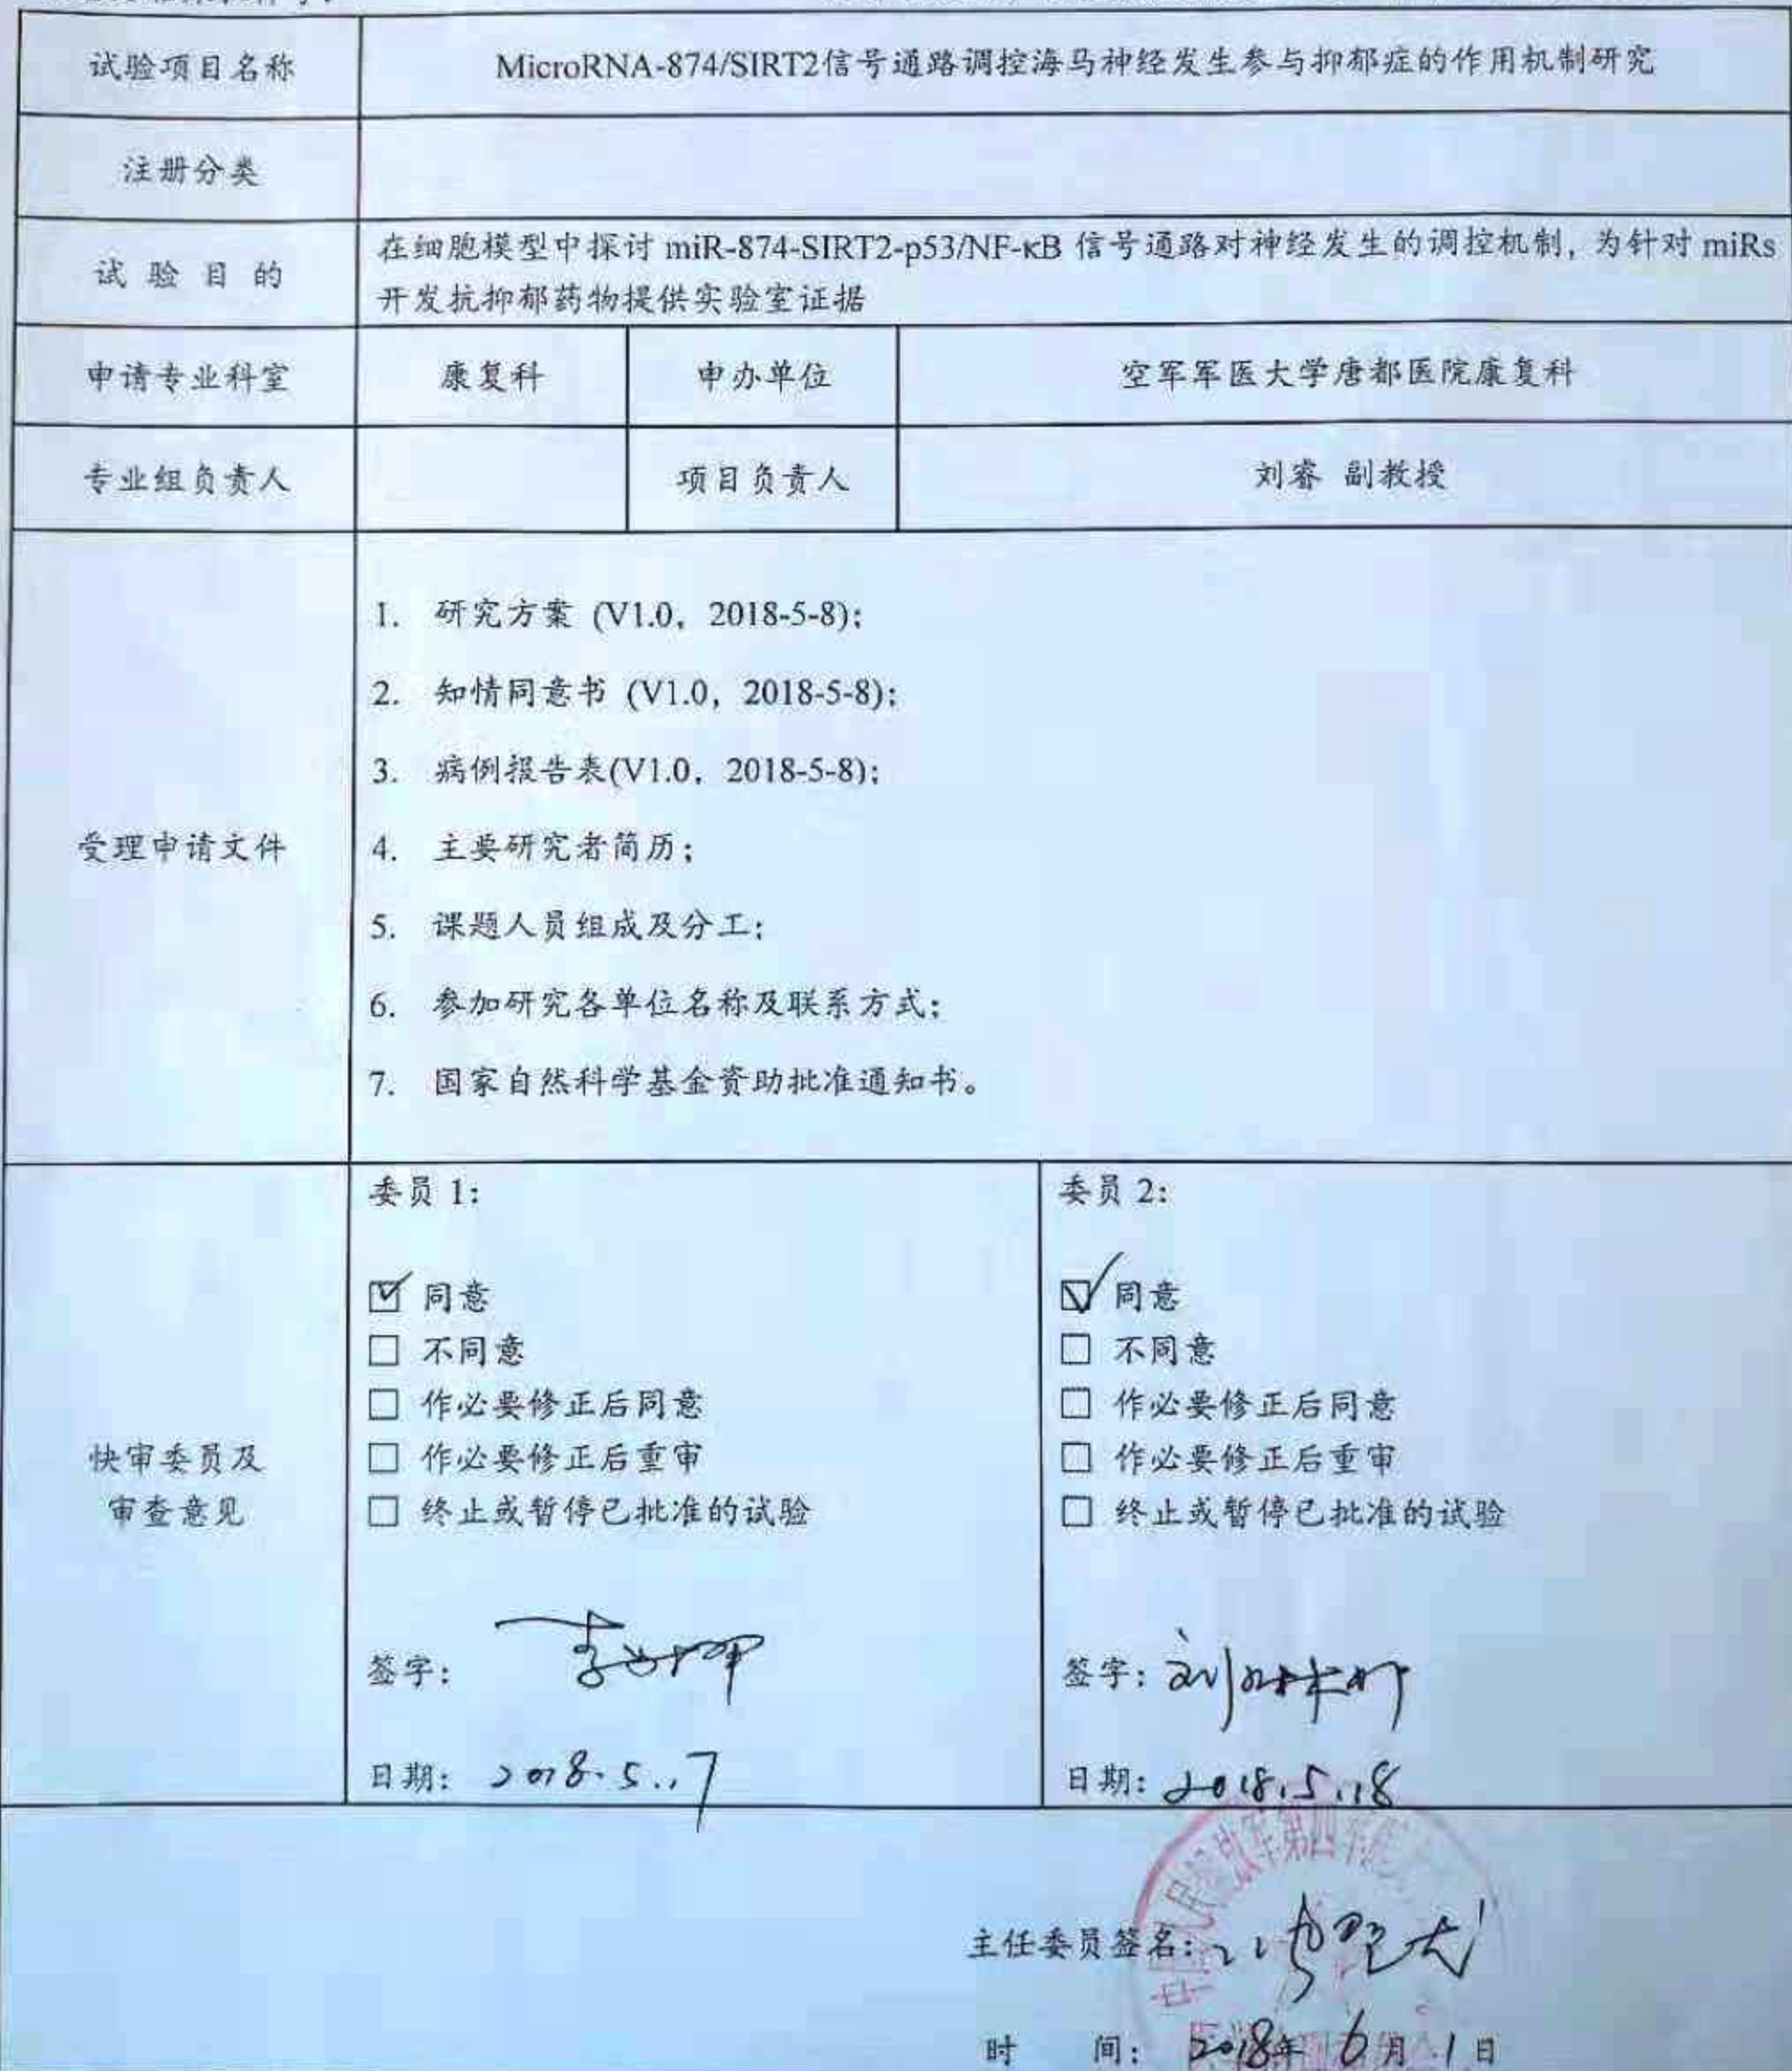 试验项目名称
MicroRNA-874/SIRT2信号通路调控海马神经发生参与抑郁症的作用机制研究
注册分类
试验目的
在细胞模型中探讨 miR-874-SIRT2-p53/NF-κB 信号通路对神经发生的调控机制, 为针对 miRs
开发抗抑郁药物提供实验室证据
申请专业科室
康复科
申办单位
空军军医大学唐都医院康复科
专业组负责人
项目负责人
刘睿 副教授
受理申请文件
1. 研究方案 (V1.0, 2018-5-8);
2. 知情同意书 (V1.0, 2018-5-8);
3. 病例报告表(V1.0, 2018-5-8);
4. 主要研究者简历;
5. 课题人员组成及分工;
6. 参加研究各单位名称及联系方式;
7. 国家自然科学基金资助批准通知书。
快审委员及
审查意见
委员 1:
☑ 同意
□ 不同意
□ 作必要修正后同意
□ 作必要修正后重审
□ 终止或暂停已批准的试验
签字:
日期: 2018.5.17
委员 2:
☑ 同意
□ 不同意
□ 作必要修正后同意
□ 作必要修正后重审
□ 终止或暂停已批准的试验
签字:
日期: 2018.5.18
主任委员签名:
时 间: 2018年 6月 1日